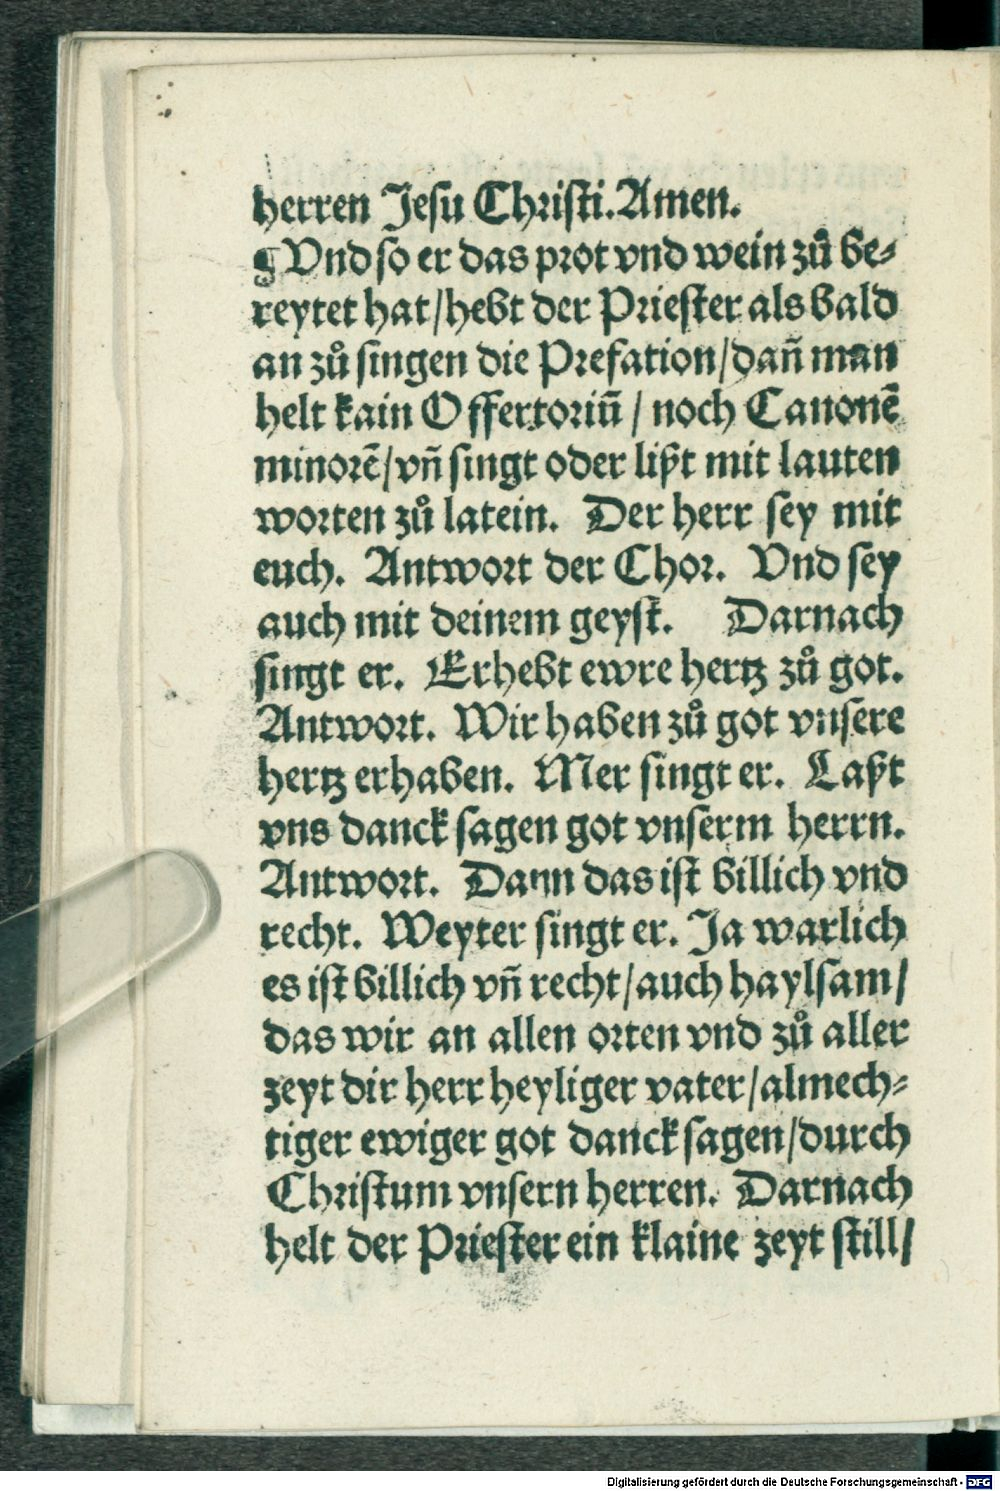 herren Jesu Christi. Amen.
¶ Vnd so er das prot vnd wein zů be-
reytet hat/hebt der Priester als bald
an zů singen die Prefation/dañ man
helt kain Offertoriũ / noch Canonẽ
minorẽ/vñ singt oder lißt mit lauten
worten zů latein. Der herr sey mit
euch. Antwort der Chor. Vnd sey
auch mit deinem geyst. Darnach
singt er. Erhebt ewre hertz zů got.
Antwort. Wir haben zů got vnsere
hertz erhaben. Mer singt er. Laßt
vns danck sagen got vnserm herrn.
Antwort. Dann das ist billich vnd
recht. Weyter singt er. Ja warlich
es ist billich vñ recht/auch haylsam/
das wir an allen orten vnd zů aller
zeyt dir herr heyliger vater/almech-
tiger ewiger got danck sagen/durch
Christum vnsern herren. Darnach
helt der Priester ein klaine zeyt still/
Digitalisierung gefördert durch die Deutsche Forschungsgemeinschaft - DFG